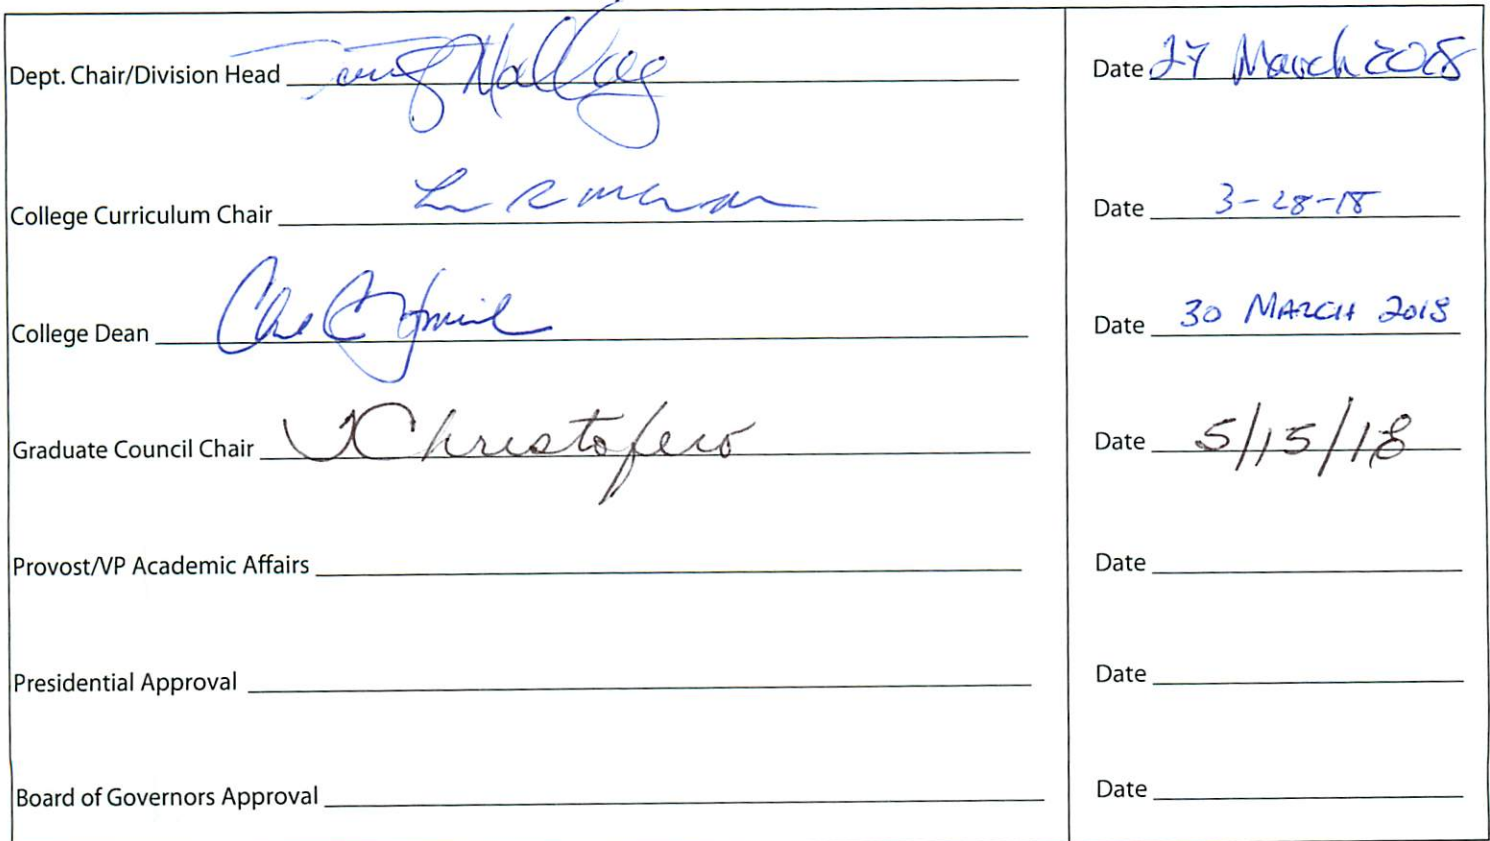 Dept. Chair/Division Head Date 27 March 2018
College Curriculum Chair Date 3-28-18
College Dean Date 30 MARCH 2018
Graduate Council Chair Christofero Date 5/15/18
Provost/VP Academic Affairs Date
Presidential Approval Date
Board of Governors Approval Date